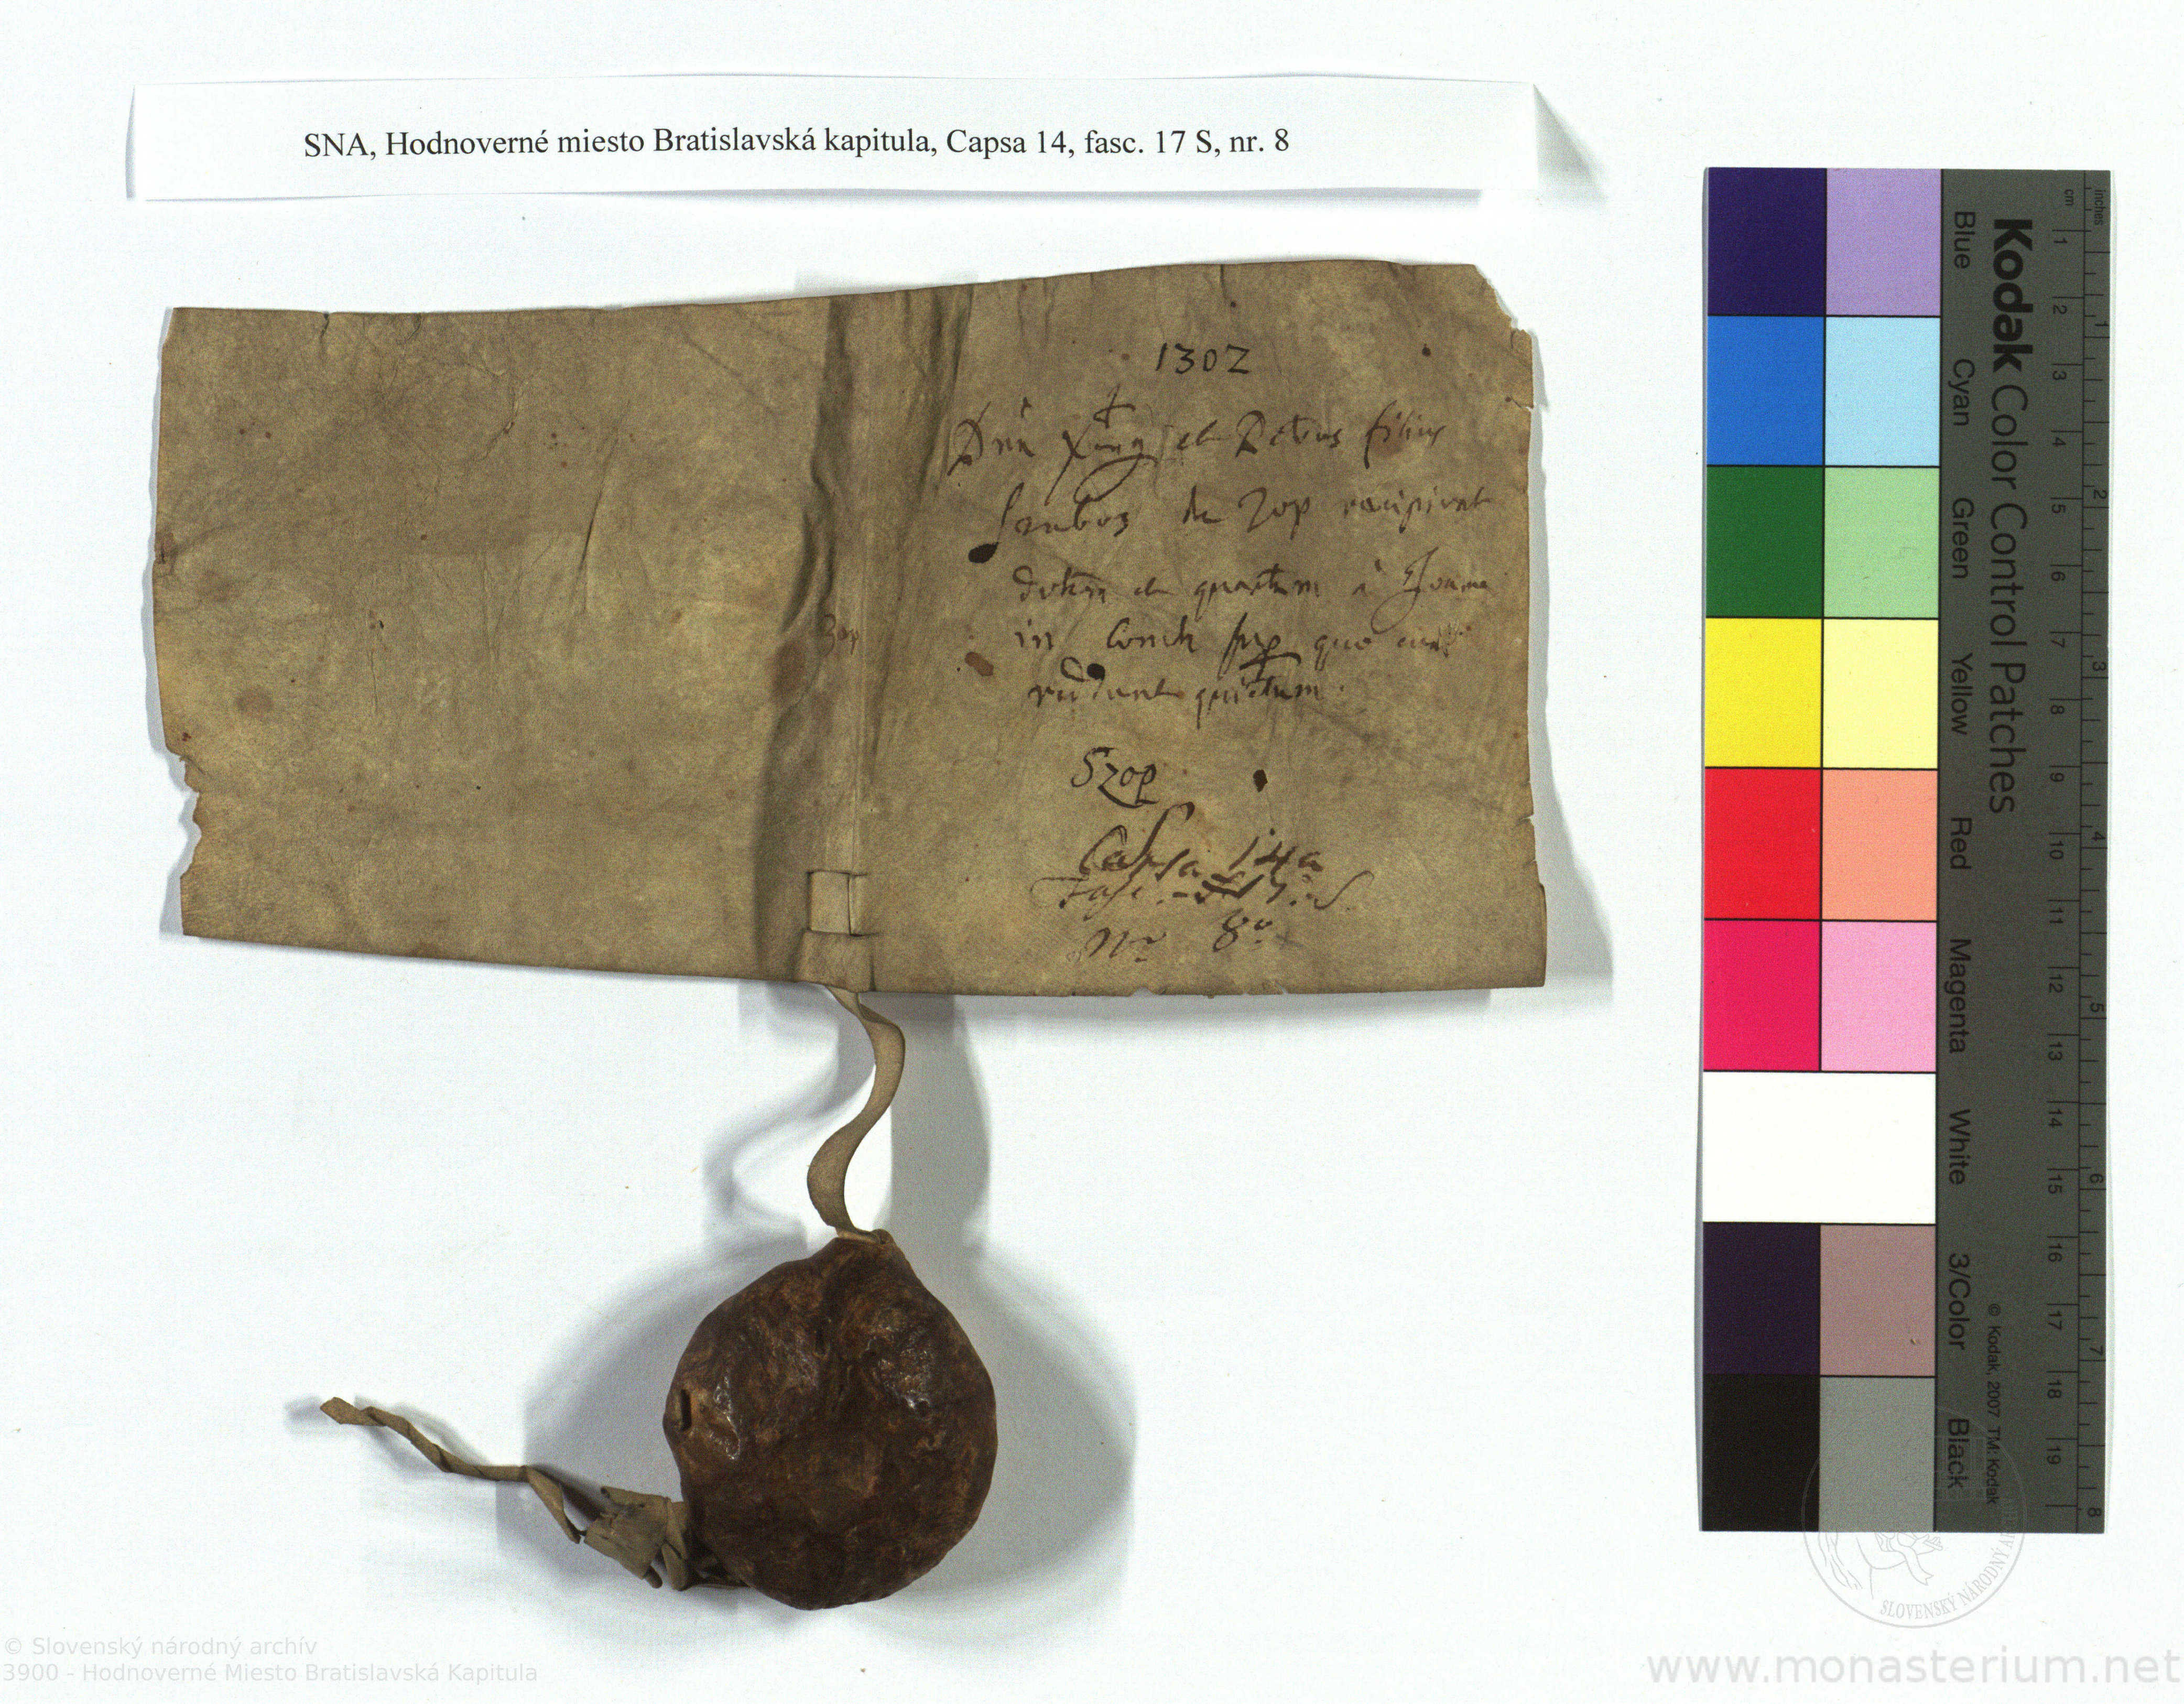 SNA, Hodnoverné miesto Bratislavská kapitula, Capsa 14, fasc. 17 S, nr. 8
1302
et Petrus filius
de Zop recipiunt
dotem et quartam à
in quo
quietum.
Zop
Szop
Capsa 14a
Fasc. 17. S
Nr 8º
Kodak Color Control Patches
Blue Cyan Green Yellow Red Magenta White 3/Color Black
© Kodak, 2007 TM: Kodak
cm 1 2 3 4 5 6 7 8 9 10 11 12 13 14 15 16 17 18 19
inches 1 2 3 4 5 6 7 8
SLOVENSKÝ NÁRODNÝ
© Slovenský národný archív
3900 - Hodnoverné Miesto Bratislavská Kapitula
www.monasterium.net